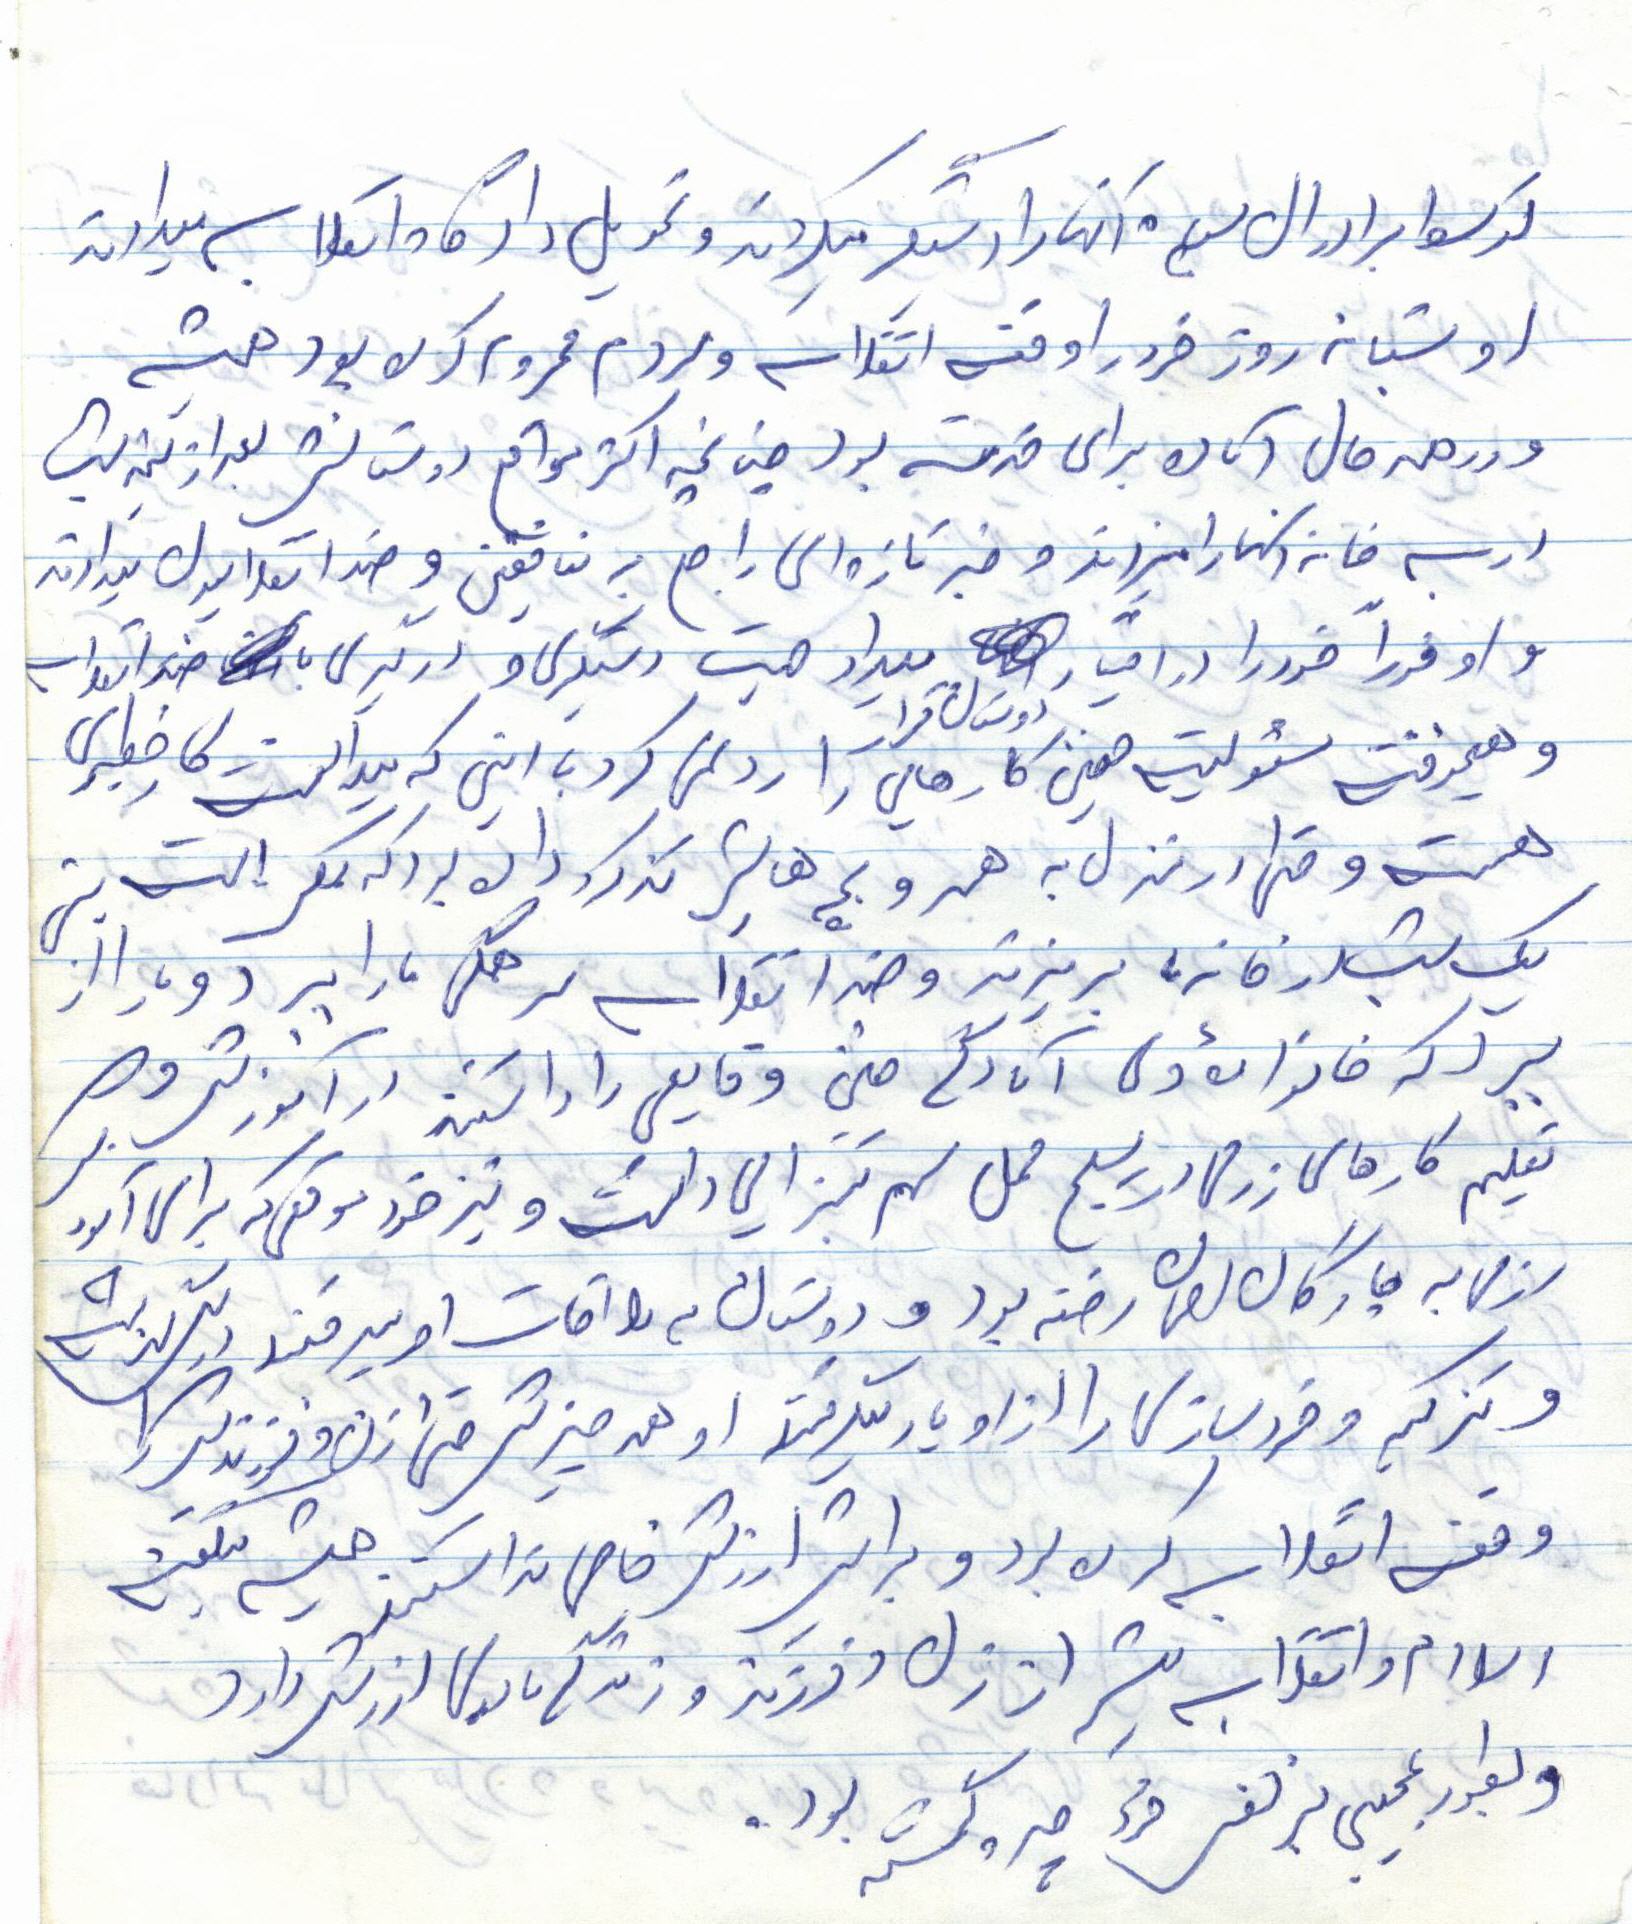 توسط برادران بسیج آنها را دستگیر میکردند و تحویل دادگاه انقلاب میدادند
او شبانه روز خود را وقف انقلاب و مردم محروم کرده بود همیشه
و در هر حال آماده برای خدمت بود چنانچه اکثر مواقع دوستانش بعد از نیمه شب
درب خانه آنها را میزدند و خبر تازه ای راجع به منافقین و ضد انقلابیون میدادند
و او فوراً خود را در اختیار دوستان قرار میداد جهت دستگیری و درگیری با ضد انقلاب
و هیچوقت مسئولیت چنین کارهایی را رد نمی کرد با اینی که میدانست کار خطیری
هست و حتی در منزل به همسر و بچه هایش تذکر داده بود که ممکن است
یک شب در خانه ما بریزند و ضد انقلاب سر همگی ما را ببرد و ما را از
ببرد که خانواده وی آمادگی چنین وقایعی را داشتند در آموزش و
تعلیم کارهای رزمی در بسیج محل سهم بسزایی داشت و نیز خود موقعی که برای آموزش
رزمی به پادگان رفته بود و دوستان به ملاقات او میرفتند
و تزکیه و خودسازی را از او یاد میگرفتند او همه چیزش حتی زن و فرزندش را
وقف انقلاب کرده بود و برایش ارزش خاصی نداشتند همیشه میگفت
اسلام و انقلاب بیشتر از زن و فرزند و زندگی مادی ارزش دارد
و بطور عجیبی بر نفس خود چیره گشته بود.